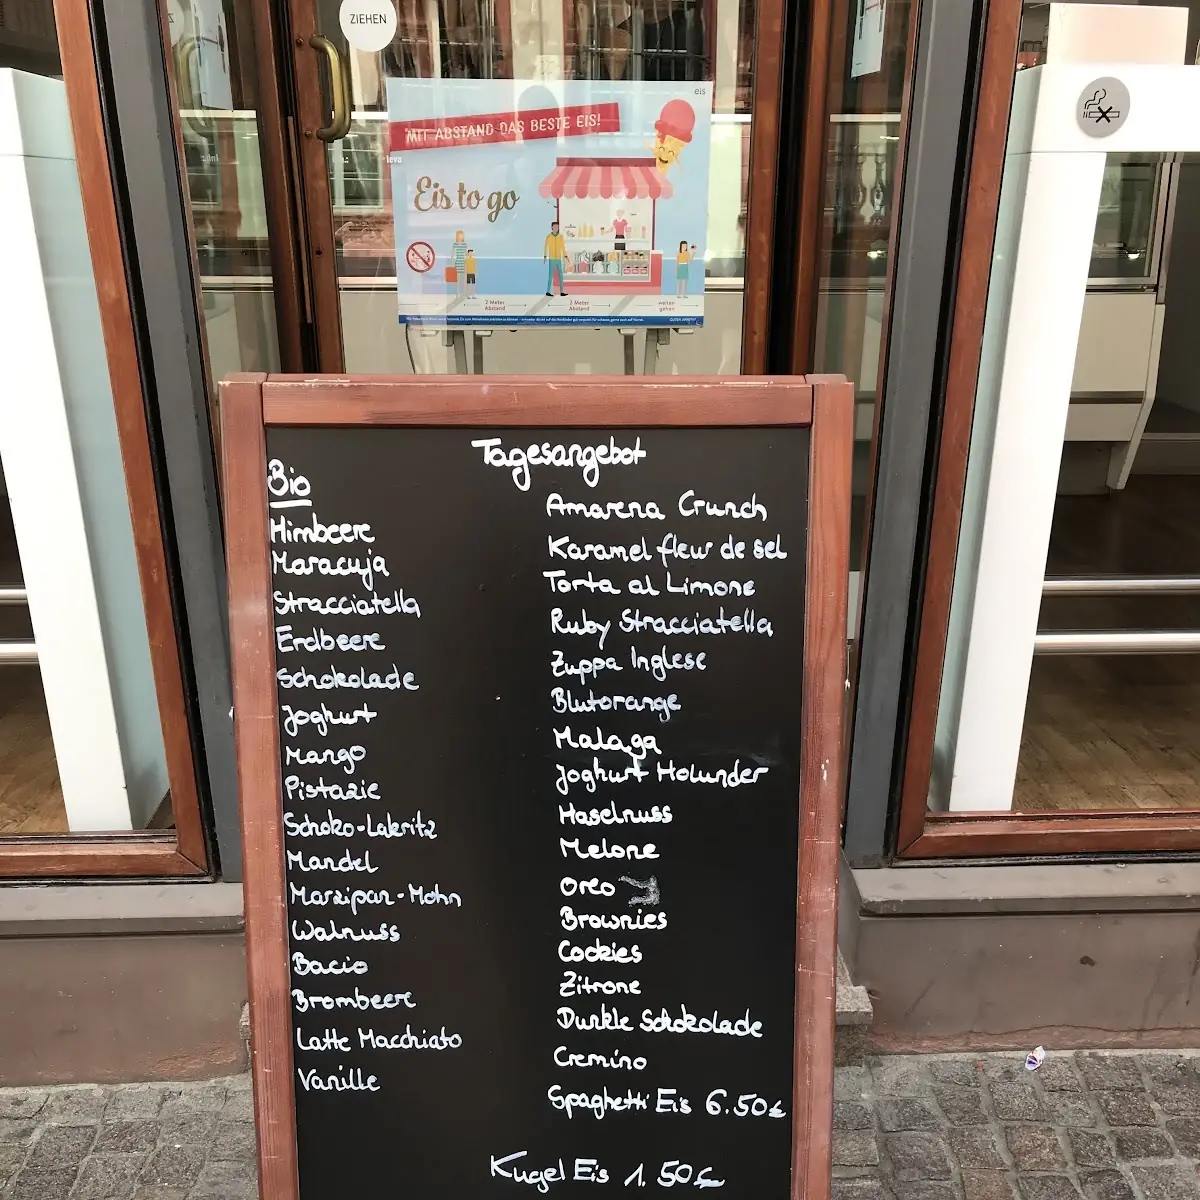 ZIEHEN
eis
MIT ABSTAND DAS BESTE EIS!
Eis to go
2 Meter
Abstand
2 Meter
Abstand
weiter-
gehen
Tagesangebot
Bio
Himbeere
Maracuja
Stracciatella
Erdbeere
Schokolade
Joghurt
Mango
Pistazie
Schoko-Lakritz
Mandel
Marzipan-Mohn
Walnuss
Bacio
Brombeere
Latte Macchiato
Vanille
Amarena Crunch
Karamel fleur de sel
Torta al Limone
Ruby Stracciatella
Zuppa Inglese
Blutorange
Malaga
Joghurt Holunder
Haselnuss
Melone
Oreo
Brownies
Cookies
Zitrone
Dunkle Schokolade
Cremino
Spaghetti Eis 6.50€
Kugel Eis 1.50€